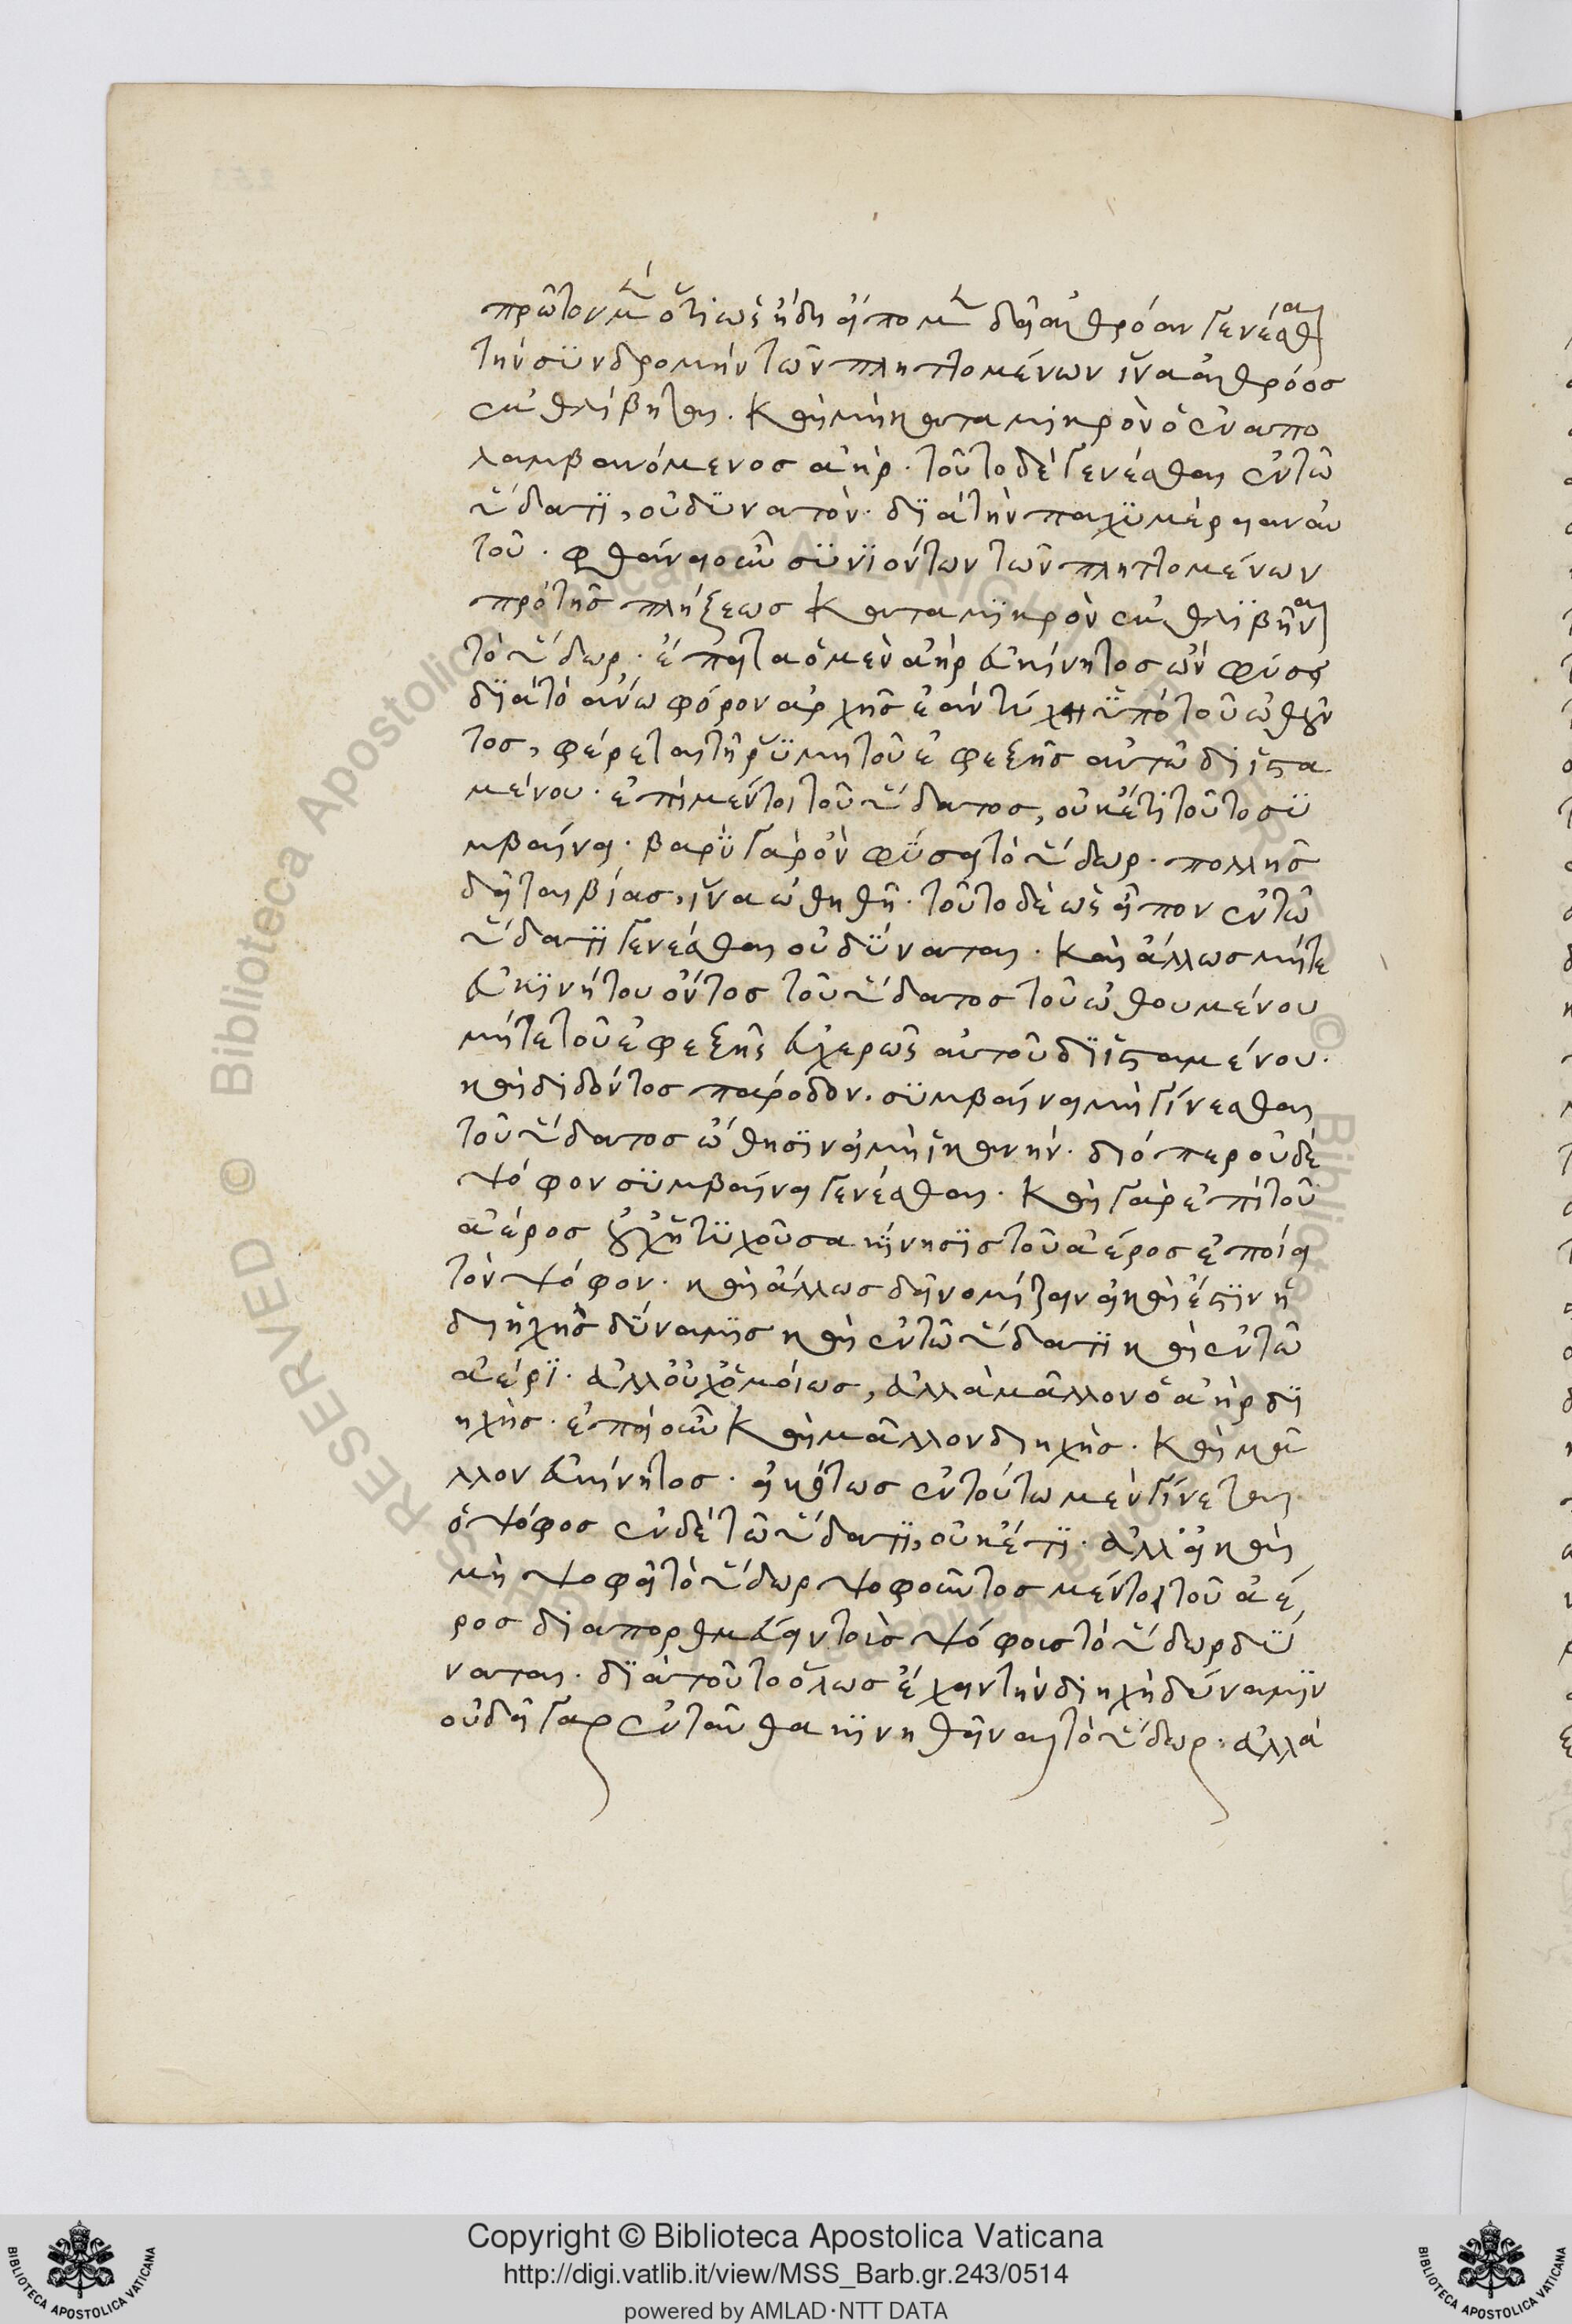 πρῶτον μὲν ὅτι ὡς ἤδη εἴπομεν δεῖ ἀθρόαν γενέσθαι
τὴν συνδρομὴν τῶν πληττομένων ἵνα ἀθρόος
ἐκθλίβηται. καὶ μὴ κατὰ μικρὸν ὁ ἐναπο
λαμβανόμενος ἀήρ. τοῦτο δὲ γενέσθαι ἐν τῷ
ὕδατι, οὐ δυνατόν. διὰ τὴν παχυμέρειαν αὐ
τοῦ. φθάνει οὖν συνιόντων τῶν πληττομένων
πρὸ τῆς πλήξεως κατὰ μικρὸν ἐκθλιβῆναι
τὸ ὕδωρ. ἔπειτα ὁ μὲν ἀὴρ εὐκίνητος ὢν φύσει
διὰ τὸ ἀνωφόρον ἀρχῆς ἐὰν τύχῃ ὑπὸ τοῦ ὠθοῦν
τος, φέρεται τῇ ῥύμῃ τοῦ ἐφεξῆς αὐτῷ διϊστα
μένου. ἐπὶ μέντοι τοῦ ὕδατος, οὐκέτι τοῦτο συ
μβαίνει. βαρὺ γὰρ ὂν φύσει τὸ ὕδωρ. πολλῆς
δεῖται βίας, ἵνα ὠθηθῇ. τοῦτο δὲ ὡς εἶπον ἐν τῷ
ὕδατι γενέσθαι οὐ δύναται. καὶ ἄλλως μήτε
εὐκινήτου ὄντος τοῦ ὕδατος τοῦ ὠθουμένου
μήτε τοῦ ἐφεξῆς εὐχερῶς αὐτοῦ διϊσταμένου.
καὶ διδόντος πάροδον. συμβαίνει μὴ γίνεσθαι
τοῦ ὕδατος ὤθησιν εἰ μὴ ἱκανήν. διόπερ οὐδὲ
ψόφον συμβαίνει γενέσθαι. καὶ γὰρ ἐπὶ τοῦ
ἀέρος οὐχ ἡ τυχοῦσα κίνησις τοῦ ἀέρος ἐποίει
τὸν ψόφον. καὶ ἄλλως δεῖ νομίζειν εἰ καὶ ἔστιν ἡ
διηχὴς δύναμις καὶ ἐν τῷ ὕδατι καὶ ἐν τῷ
ἀέρι. ἀλλ' οὐχ ὁμοίως, ἀλλὰ μᾶλλον ὁ ἀὴρ δι
ηχής. ἐπεὶ οὖν καὶ μᾶλλον διηχής. καὶ μᾶ
λλον εὐκίνητος. εἰκότως ἐν τούτῳ μὲν γίνεται
ὁ ψόφος ἐν δὲ τῷ ὕδατι, οὐκέτι. ἀλλ' εἰ καὶ
μὴ ψοφεῖ τὸ ὕδωρ ψοφοῦντος μέντοι τοῦ ἀέ
ρος διαπορθμεύειν τοῖς ψόφοις τὸ ὕδωρ δύ
ναται. διὰ τοῦτο ὅλως ἔχειν τὴν διηχῆ δύναμιν
οὐ δεῖ γὰρ ἐνταῦθα κινηθῆναι τὸ ὕδωρ. ἀλλὰ
Copyright © Biblioteca Apostolica Vaticana
http://digi.vatlib.it/view/MSS_Barb.gr.243/0514
powered by AMLAD·NTT DATA